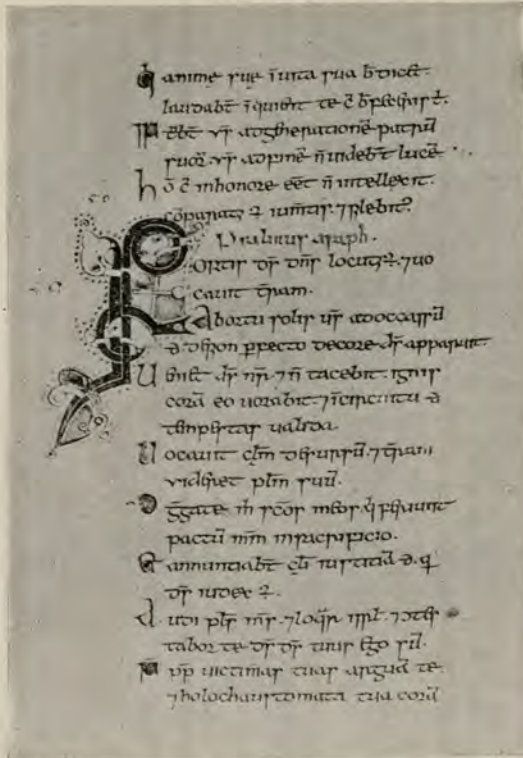 animę sue ī uita sua b̄dicēt.
laudabt̄ īquient te c̄ b̄ fecſris t̄.
ēbt̄ usq̄ ad generationē patrū
suoꝝ. usq̄ ad finē n̄ uidebt̄ lucē
hō c̄ in honore eēt n̄ intellexit.
cōparat; ÷ ium̄tis. ⁊ silebit᷑
Psalmus asaph.
Fortis d̄s dn̄s locut; ÷. ⁊ uo
cauit t̄ram.
Ab ortu solis us̄ ad occassū
desion perfecto decore d̄s apparuit
Ueniēt d̄s nr̄ ⁊ n̄ tacebit. ignis
corā eo uorabit. ⁊ īcircuitu
tempestas ualida.
Uocauit cl̄m desursū. ⁊ t̄ram
pl̄m suū.
gate m̄ sc̄os meos q̄ feriunt
pactū mm̄ in sacrificio.
annuntiabt̄ cl̄i iustitiā
d̄s iudex ÷.
Audi pl̄s ms̄. ⁊ loq̄r isrl̄. ⁊ 
tabor te d̄s d̄s tuus ego sū.
pp̄ uictimas tuas arguā te
⁊ holochaustomata tua corā